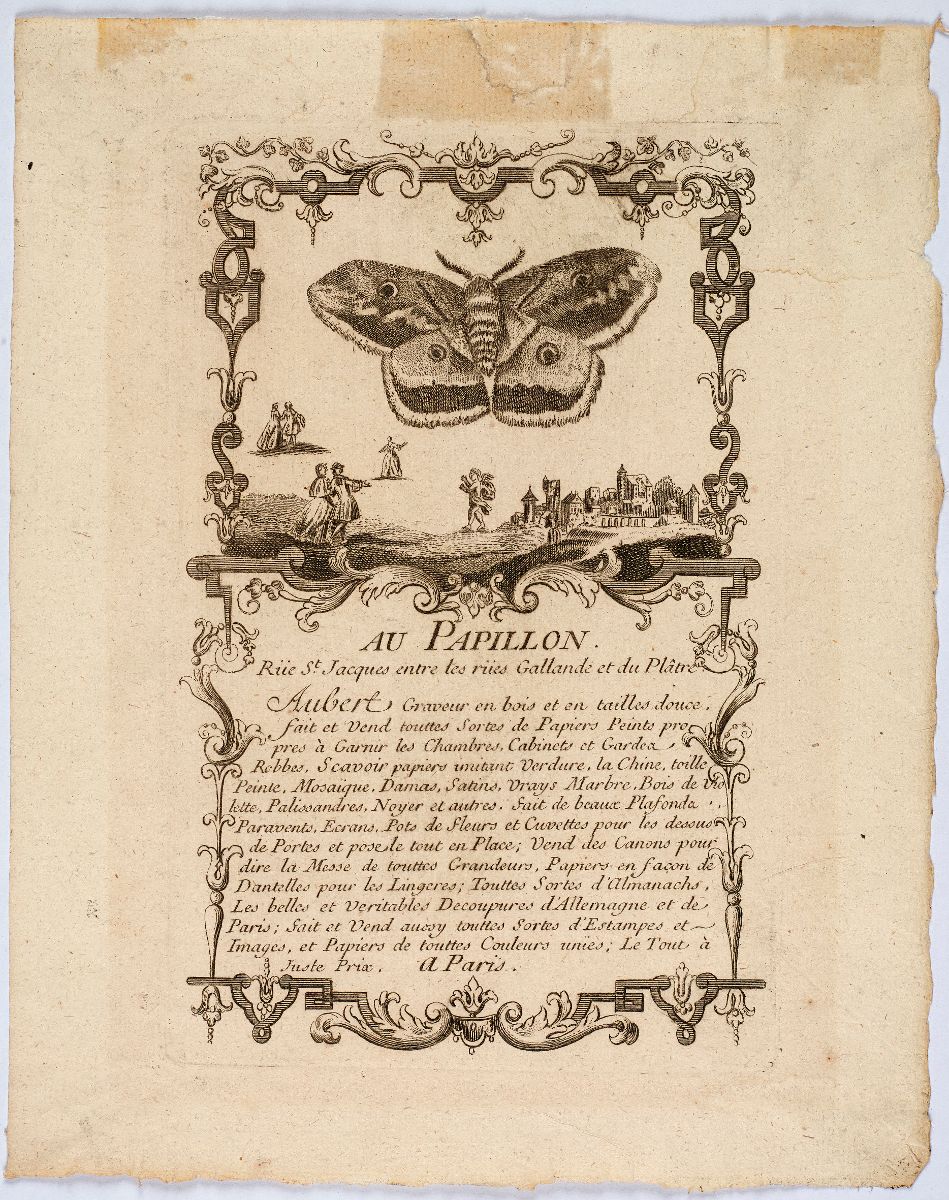 AU PAPILLON.
Rüe St. Jacques entre les rües Gallande et du Plâtre
Aubert Graveur en bois et en tailles douce,
fait et Vend touttes Sortes de Papiers Peints pro
pres à Garnir les Chambres, Cabinets et Garde
Robbes, Scavoir papiers imitant Verdure, la Chine, toille
Peinte, Mosaique, Damas, Satins, Vrays Marbre, Bois de Vio
lette, Palissandres, Noyer et autres. fait de beaux Plafonds,
Paravents, Ecrans, Pots de fleurs et Cuvettes pour les dessus
de Portes et pose le tout en Place; Vend des Canons pour
dire la Messe de touttes Grandeurs, Papiers en façon de
Dantelles pour les Lingeres; Touttes Sortes d'Almanachs,
Les belles et Veritables Decoupures d'Allemagne et de
Paris; fait et Vend aussy touttes Sortes d'Estampes et
Images, et Papiers de touttes Couleurs unies; Le Tout à
Juste Prix. A Paris.